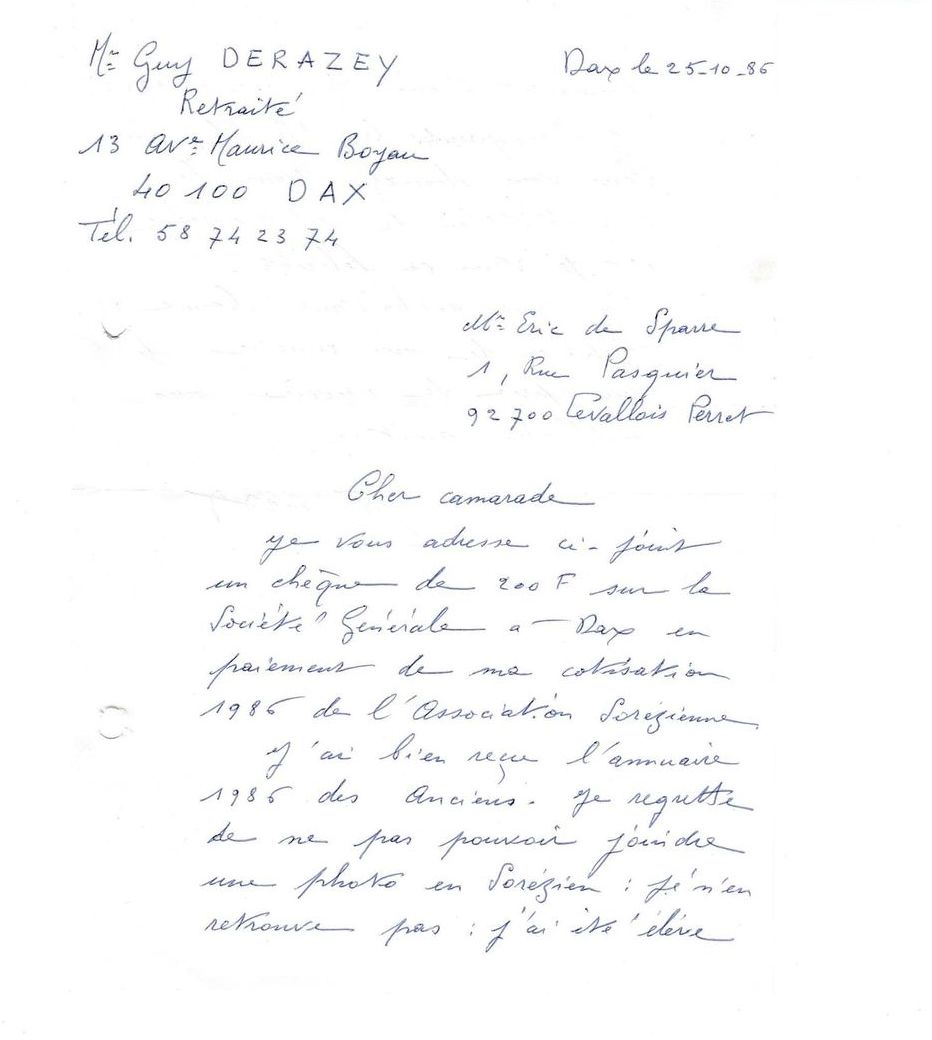 Mr Guy DERAZEY
Dax le 25-10-86
Retraité
13 Ave Maurice Boyau
40 100 DAX
Tél. 58 74 23 74
Mr Eric de Sparre
1, Rue Pasquier
92700 Levallois Perret
Cher camarade
Je vous adresse ci-joint
un chèque de 200 F sur la
Société Générale a Dax en
paiement de ma cotisation
1986 de l'Association Sorézienne.
J'ai bien reçu l'annuaire
1986 des Anciens. Je regrette
de ne pas pouvoir joindre
une photo en Sorézien : je n'en
retrouve pas : j'ai été élève